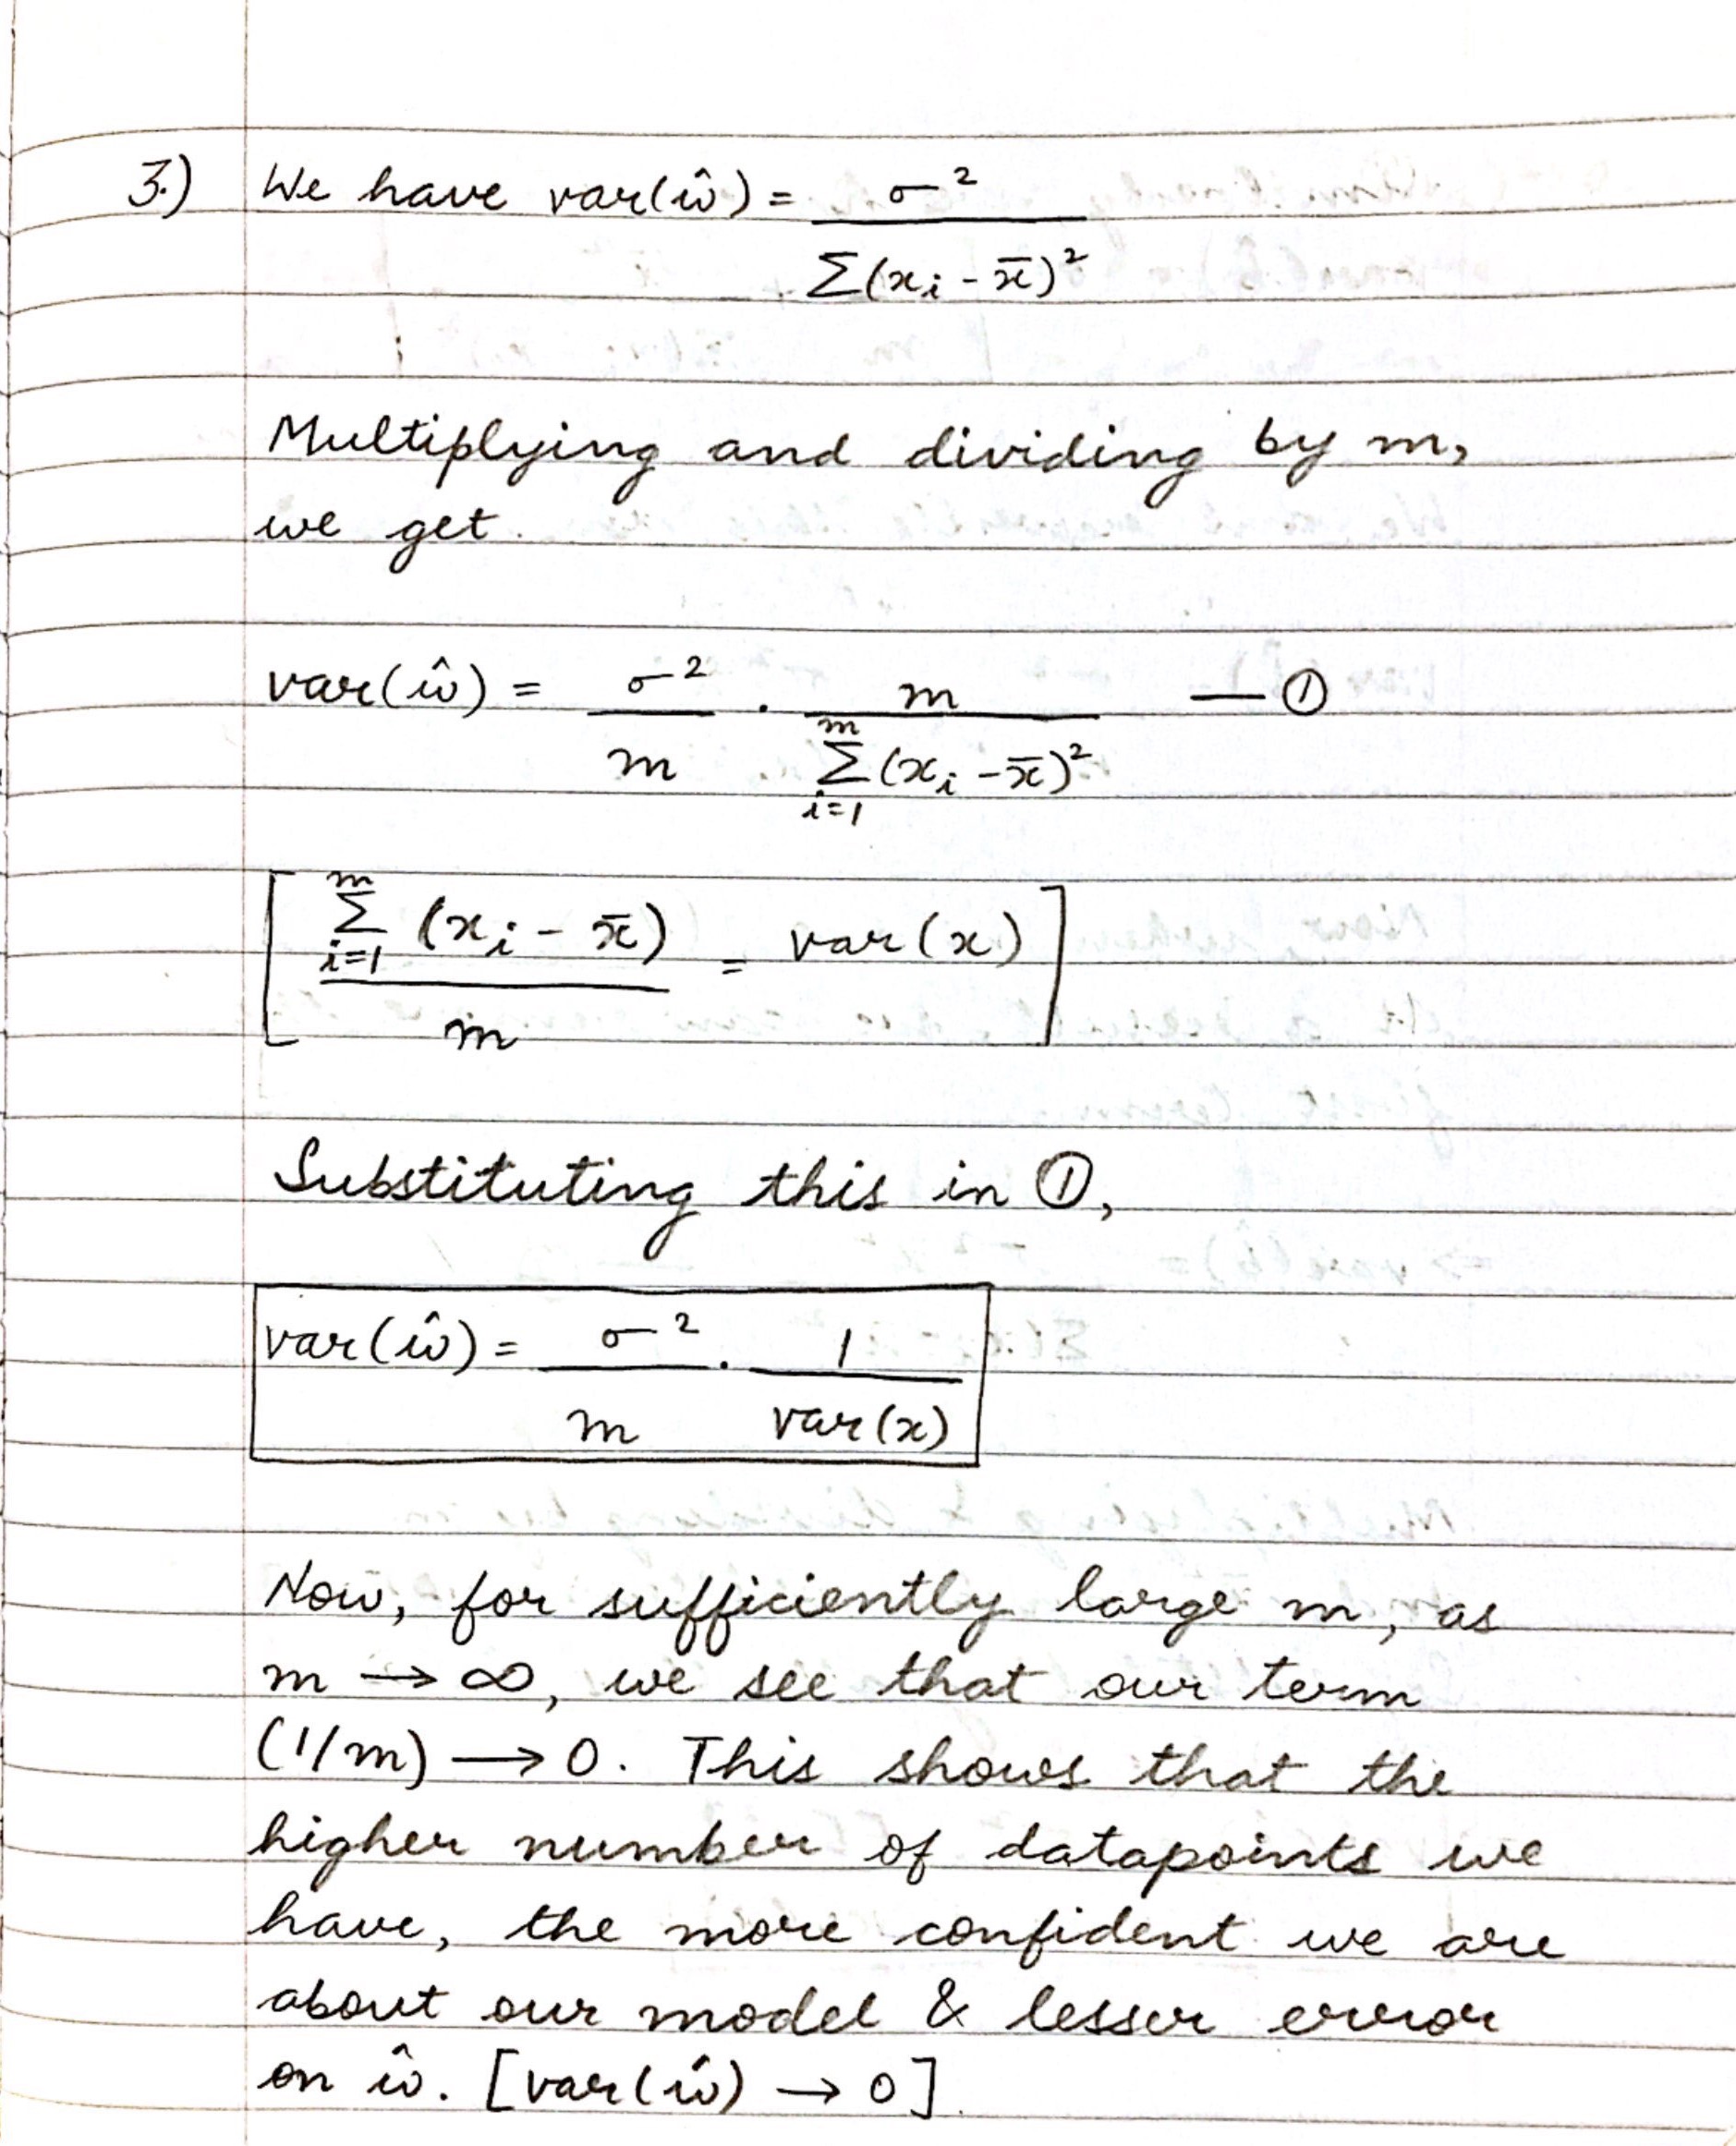 3.) We have var(ŵ) = σ² / Σ(xᵢ - x̄)²
Multiplying and dividing by m,
we get
var(ŵ) = σ²/m · m / Σᵢ₌₁ᵐ (xᵢ - x̄)² — ①
[ Σᵢ₌₁ᵐ (xᵢ - x̄) / m = var(x) ]
Substituting this in ①,
var(ŵ) = σ²/m · 1/var(x)
Now, for sufficiently large m, as
m → ∞, we see that our term
(1/m) → 0. This shows that the
higher number of datapoints we
have, the more confident we are
about our model & lesser error
on ŵ. [var(ŵ) → 0]